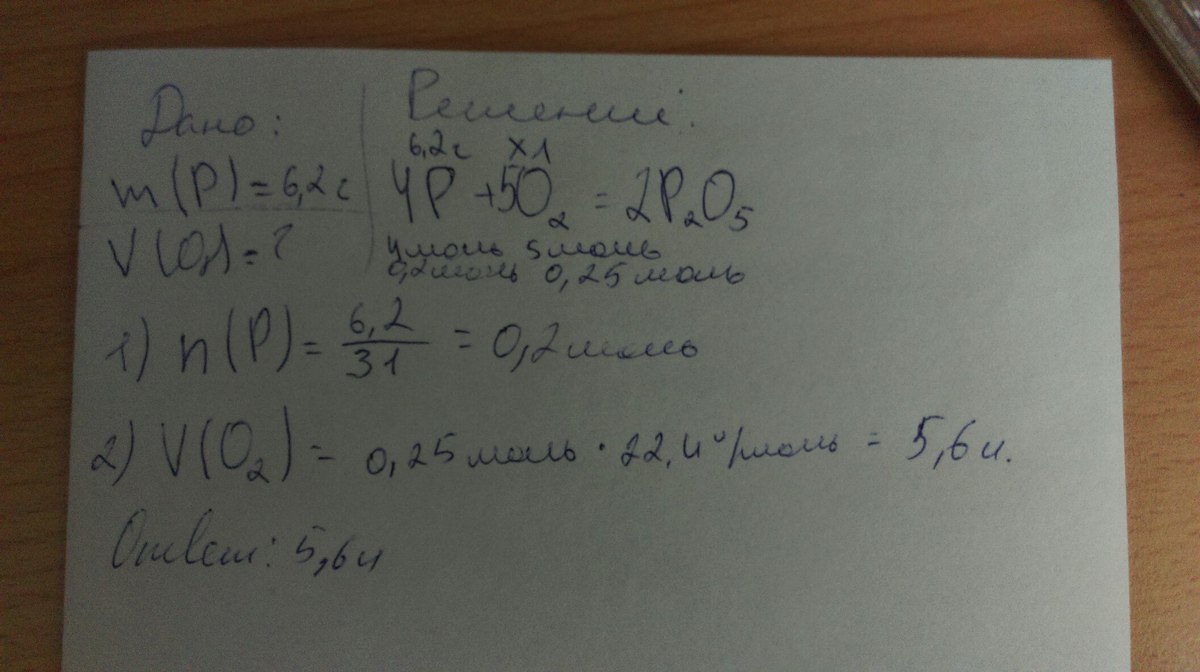 Дано:
m(P)=6,2г
V(O₂)=?
Решение:
6,2г х1
4P + 5O₂ = 2P₂O₅
4моль 5моль
0,2моль 0,25моль
1) n(P) = 6,2/31 = 0,2моль
2) V(O₂) = 0,25моль · 22,4л/моль = 5,6л.
Ответ: 5,6л